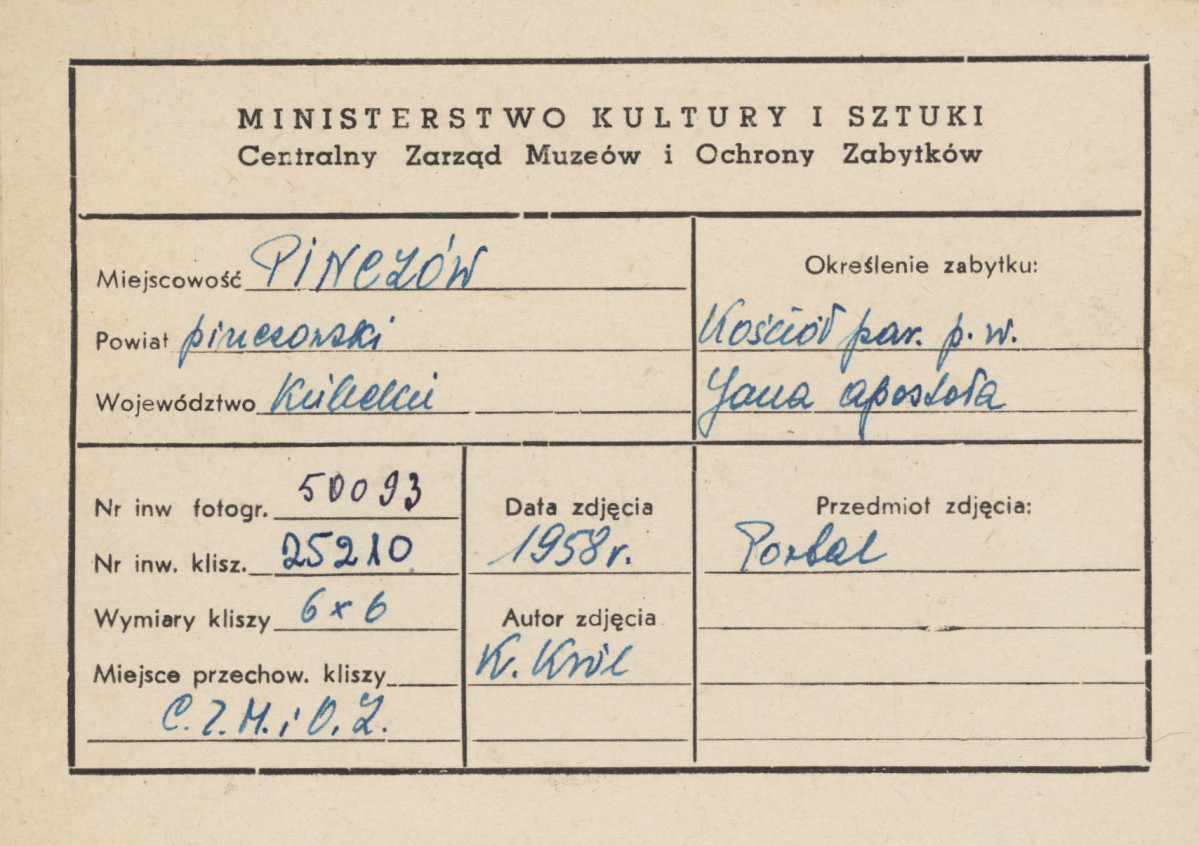 MINISTERSTWO KULTURY I SZTUKI
Centralny Zarząd Muzeów i Ochrony Zabytków
Miejscowość PINCZÓW
Powiat pinczowski
Województwo Kielecki
Określenie zabytku:
Kościół par. p. w.
Jana apostoła
Nr inw fotogr. 50093
Nr inw. klisz. 25210
Wymiary kliszy 6 x 6
Miejsce przechow. kliszy
C. Z. M. i O. Z.
Data zdjęcia
1958 r.
Autor zdjęcia
K. Król
Przedmiot zdjęcia:
Portal